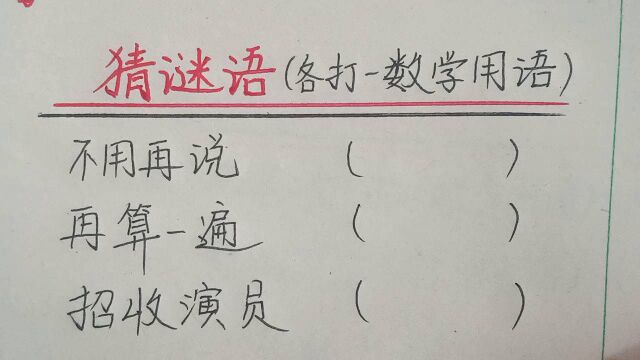 猜谜语(各打一数学用语)
不用再说 ( )
再算一遍 ( )
招收演员 ( )